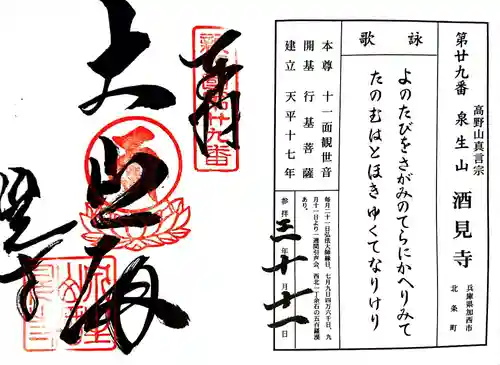 第廿九番
高野山真言宗
泉生山 酒見寺
兵庫県加西市
北条町
詠歌
よのたびをさがみのてらにかへりみて
たのむはとほきゆくてなりけり
本尊 十一面観世音
開基 行基菩薩
建立 天平十七年
毎月二十一日弘法大師縁日、七月九日四万六千日、九
月十一日より一週間引声会、西北一丁余石の五百羅漢
あり。
参拝三十年十月十一日
奉拝
大悲殿
酒見寺